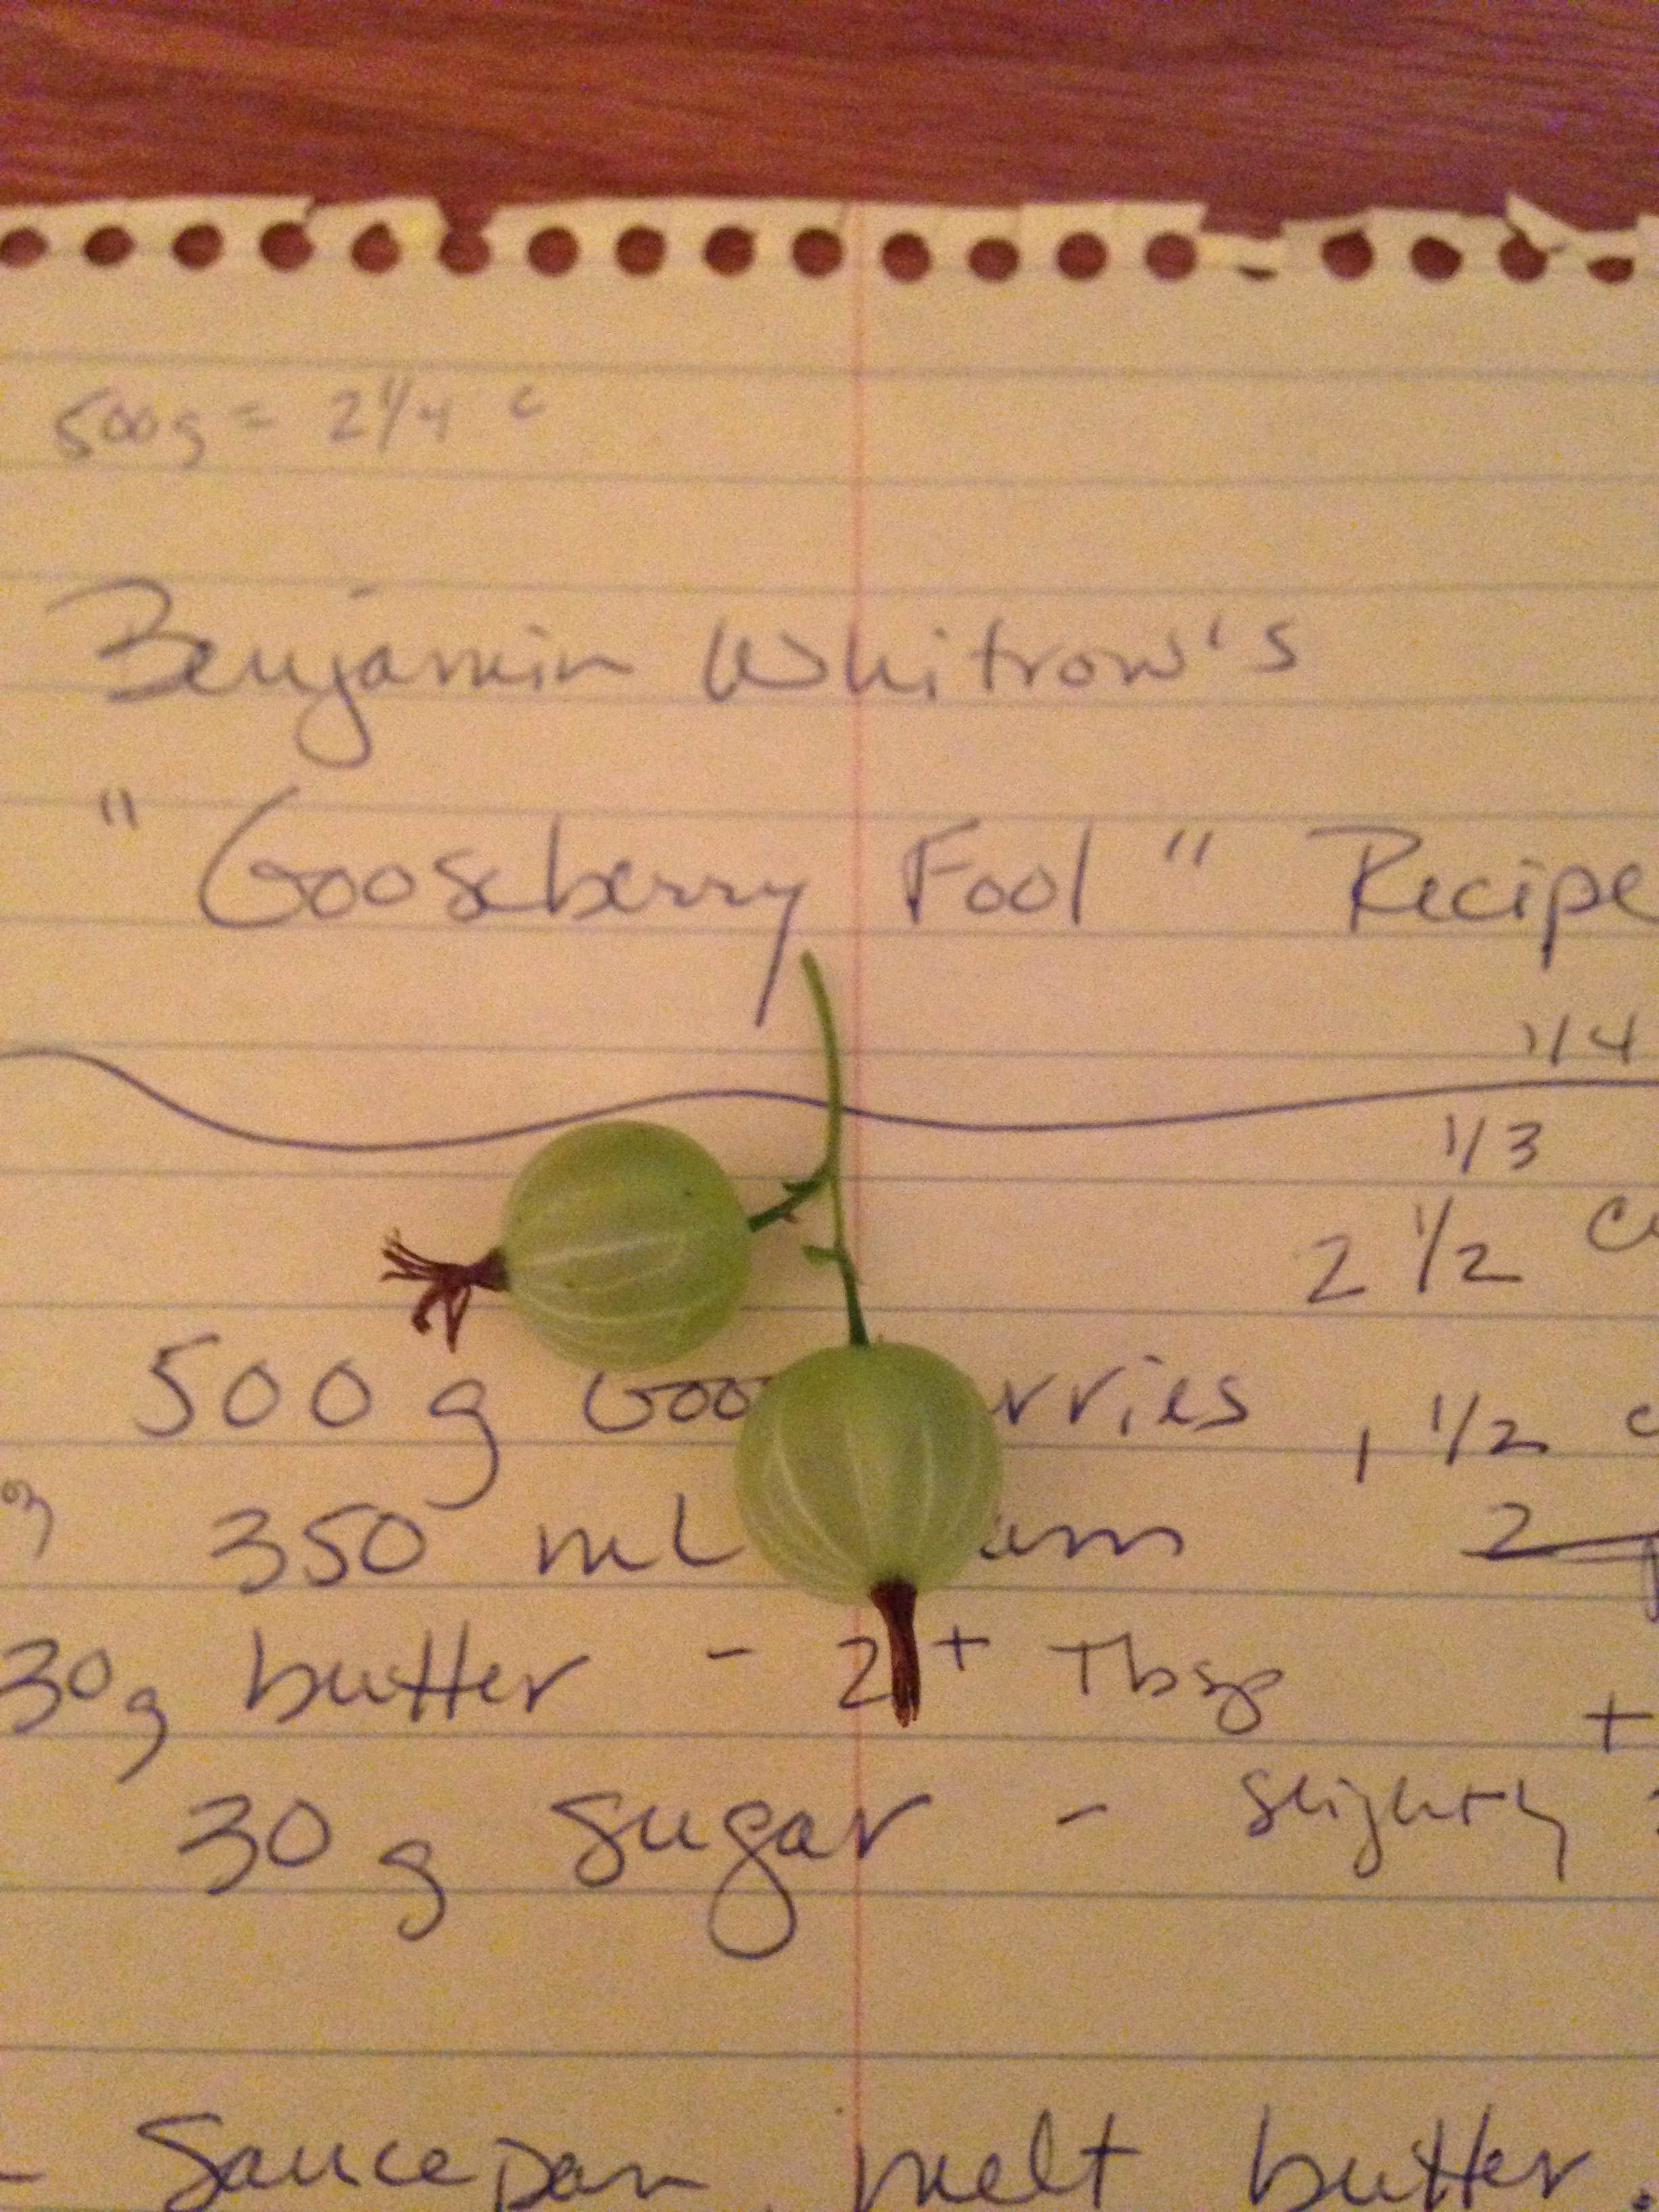 500g = 2 1/4 c
Benjamin Whitrow's
"Gooseberry Fool" Recipe
1/4
1/3
2 1/2
500 g Goo rries , 1 1/2 c
350 mL 2
30g butter - 2+ Tbsp +
30 g sugar - slightly
- Saucepan, melt butter.